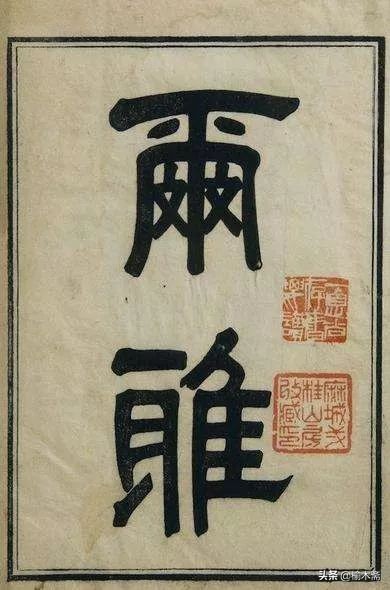 爾雅
麻城
桂山房
藏印
头条 @榆木斋